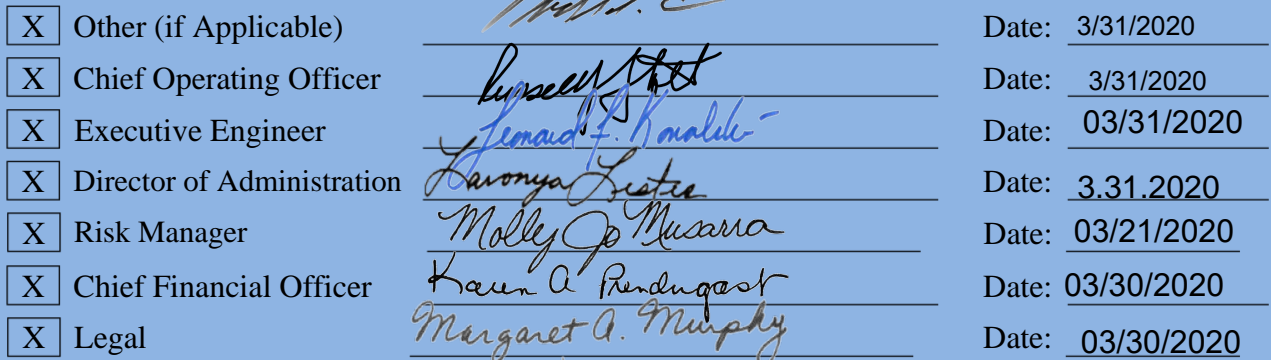 X Other (if Applicable) Date: 3/31/2020
X Chief Operating Officer Date: 3/31/2020
X Executive Engineer Leonard F. Date: 03/31/2020
X Director of Administration Lavonya Lester Date: 3.31.2020
X Risk Manager Molly Jo Musarra Date: 03/21/2020
X Chief Financial Officer Karen A Prendergast Date: 03/30/2020
X Legal Margaret A. Murphy Date: 03/30/2020